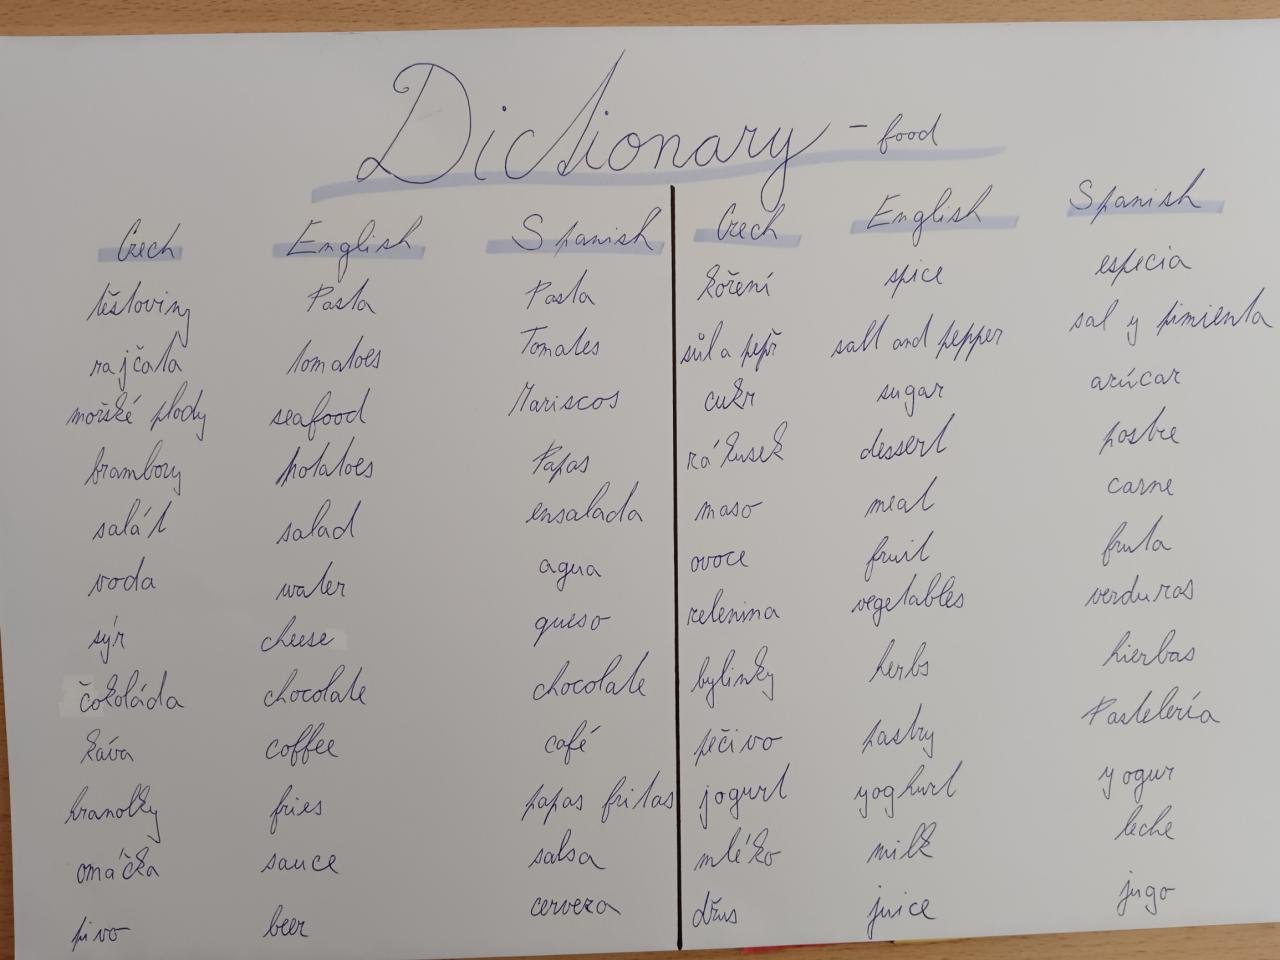 Dictionary - food
Czech English Spanish
těstoviny Pasta Pasta
rajčata tomatoes Tomates
mořské plody seafood Mariscos
brambory potatoes Papas
salát salad ensalada
voda water agua
sýr cheese queso
čokoláda chocolate chocolate
káva coffee café
hranolky fries papas fritas
omáčka sauce salsa
pivo beer cerveza
Czech English Spanish
koření spice especia
sůl a pepř salt and pepper sal y pimienta
cukr sugar azúcar
zákusek dessert postre
maso meat carne
ovoce fruit fruta
zelenina vegetables verduras
bylinky herbs hierbas
pečivo pastry Pastelería
jogurt yoghurt yogur
mléko milk leche
džus juice jugo